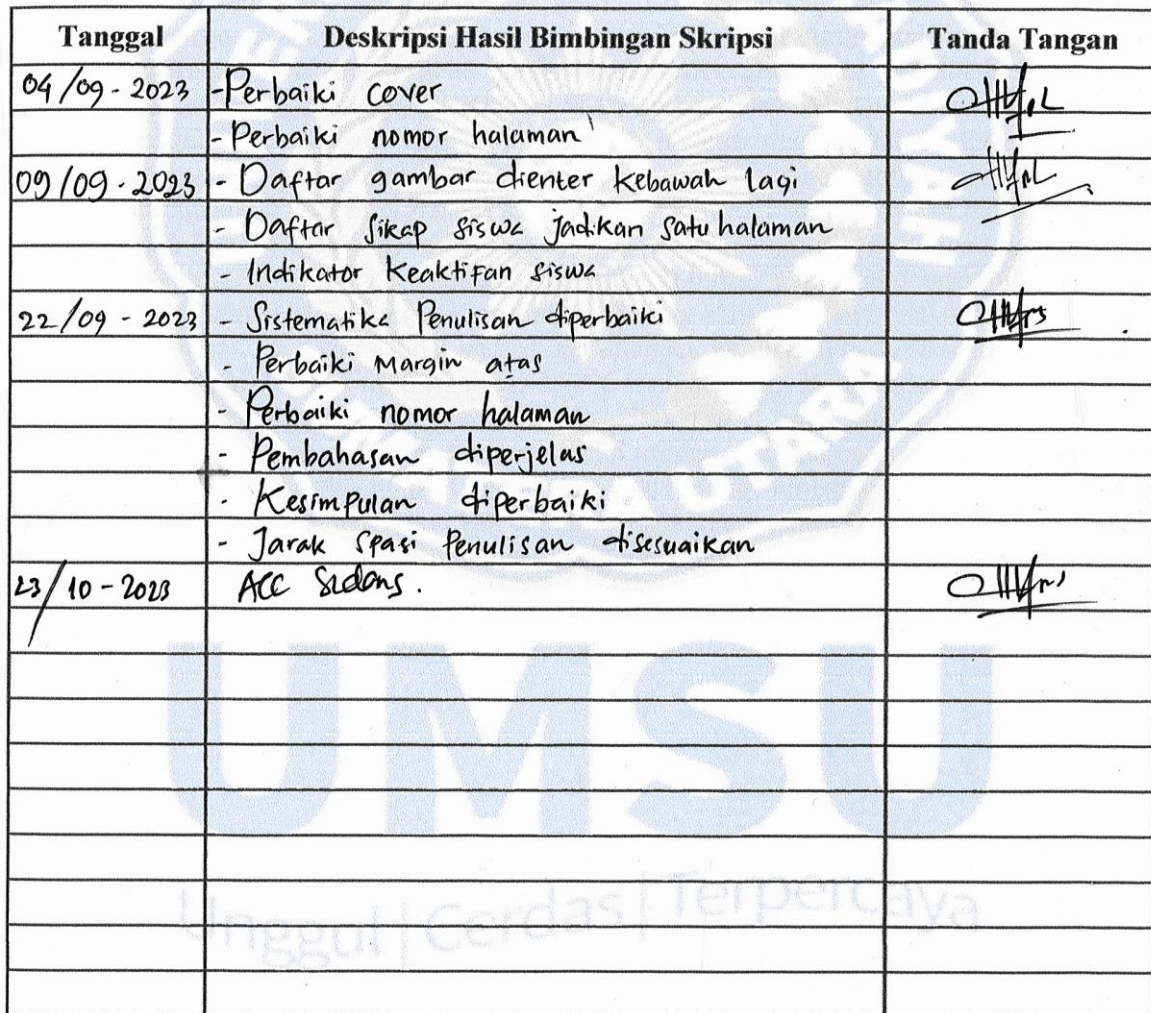 Tanggal Deskripsi Hasil Bimbingan Skripsi Tanda Tangan
04/09-2023 -Perbaiki cover
-Perbaiki nomor halaman
09/09-2023 - Daftar gambar dienter kebawah lagi
- Daftar sikap siswa jadikan satu halaman
- Indikator Keaktifan siswa
22/09-2023 - Sistematika Penulisan diperbaiki
- Perbaiki Margin atas
- Perbaiki nomor halaman
- Pembahasan diperjelas
- Kesimpulan diperbaiki
- Jarak spasi Penulisan disesuaikan
23/10-2023 ACC Sidang.
UMSU
Unggul | Cerdas | Terpercaya
UTARA